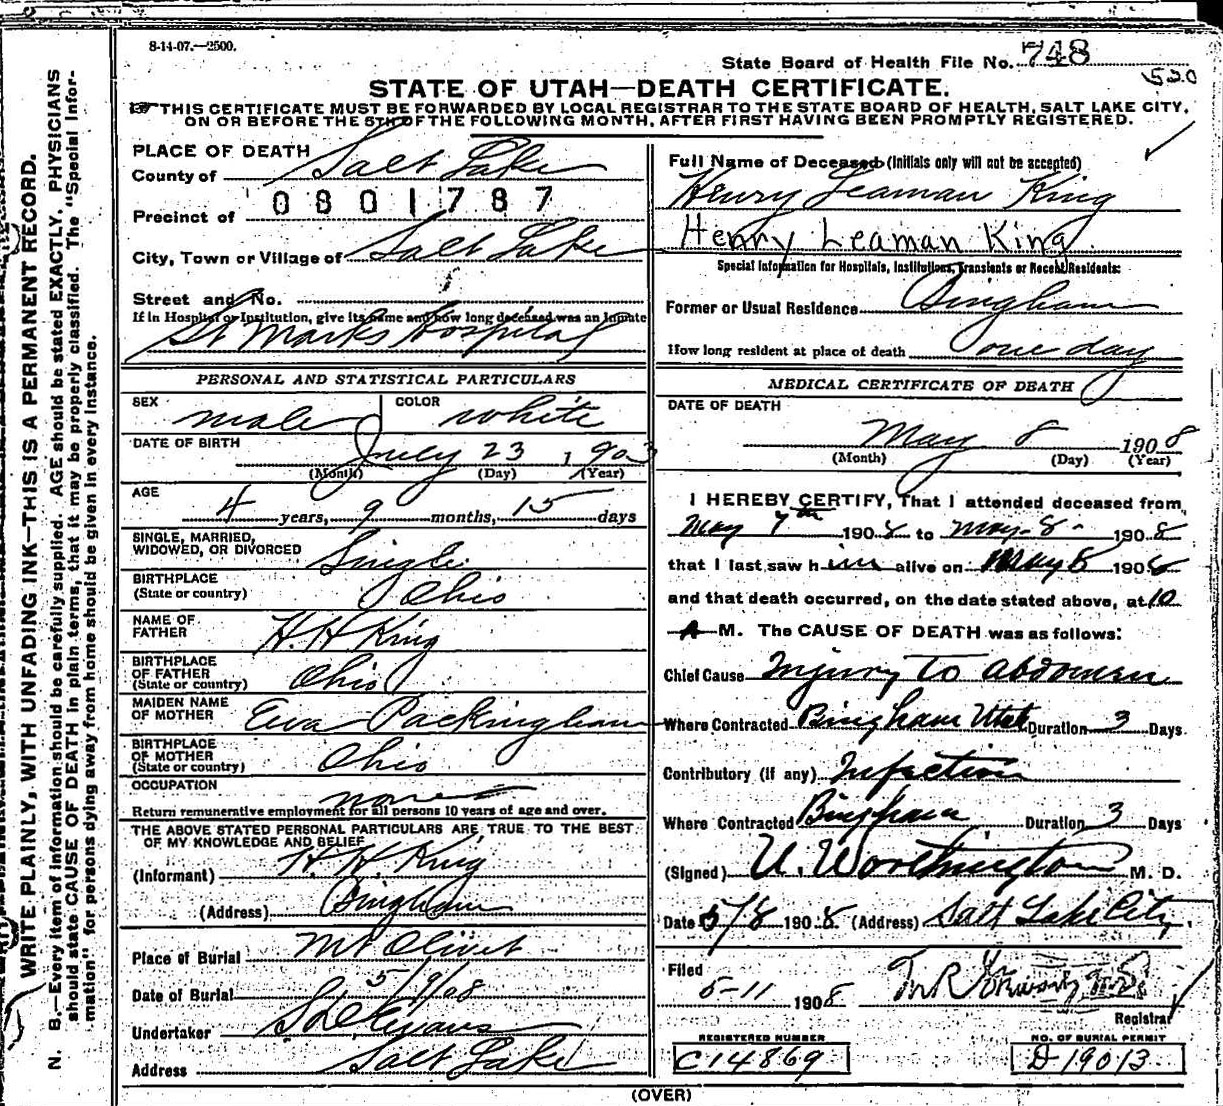 8-14-07.—2500.
State Board of Health File No. 748
520
STATE OF UTAH—DEATH CERTIFICATE.
THIS CERTIFICATE MUST BE FORWARDED BY LOCAL REGISTRAR TO THE STATE BOARD OF HEALTH, SALT LAKE CITY,
ON OR BEFORE THE 5TH OF THE FOLLOWING MONTH, AFTER FIRST HAVING BEEN PROMPTLY REGISTERED.
PLACE OF DEATH
County of Salt Lake
0801787
Precinct of
City, Town or Village of Salt Lake
Street and No.
If in Hospital or Institution, give its name and how long deceased was an Inmate
St Marks Hospital
PERSONAL AND STATISTICAL PARTICULARS
SEX male COLOR white
DATE OF BIRTH July 23 1903
(Month) (Day) (Year)
AGE
4 years, 9 months, 15 days
SINGLE, MARRIED,
WIDOWED, OR DIVORCED Single
BIRTHPLACE
(State or country) Ohio
NAME OF
FATHER H. H King
BIRTHPLACE
OF FATHER
(State or country) Ohio
MAIDEN NAME
OF MOTHER Ewa Packingham
BIRTHPLACE
OF MOTHER
(State or country) Ohio
OCCUPATION none
Return remunerative employment for all persons 10 years of age and over.
THE ABOVE STATED PERSONAL PARTICULARS ARE TRUE TO THE BEST
OF MY KNOWLEDGE AND BELIEF
(Informant) H. H. King
(Address) Bingham
Place of Burial Mt Olivet
Date of Burial 5/9/08
Undertaker S D Evans
Address Salt Lake
Full Name of Deceased (Initials only will not be accepted)
Henry Leaman King
Henry Leaman King
Special Information for Hospitals, Institutions, Transients or Recent Residents:
Former or Usual Residence Bingham
How long resident at place of death one day
MEDICAL CERTIFICATE OF DEATH
DATE OF DEATH
May 8 1908
(Month) (Day) (Year)
I HEREBY CERTIFY, That I attended deceased from
May 7th 1908 to May 8 1908
that I last saw him alive on May 8 1908
and that death occurred, on the date stated above, at 10
A M. The CAUSE OF DEATH was as follows:
Chief Cause Injury To abdomen
Where Contracted Bingham Utah Duration 3 Days
Contributory (if any) Infection
Where Contracted Bingham Duration 3 Days
(Signed) U. Worthington M. D.
Date 5/8 1908 (Address) Salt Lake City
Filed
5-11 1908
Registrar
REGISTERED NUMBER
C14869
NO. OF BURIAL PERMIT
D19013
(OVER)
WRITE PLAINLY, WITH UNFADING INK—THIS IS A PERMANENT RECORD.
N. B.—Every item of information should be carefully supplied. AGE should be stated EXACTLY. PHYSICIANS
should state CAUSE OF DEATH in plain terms, that it may be properly classified. The "Special Infor-
mation" for persons dying away from home should be given in every instance.